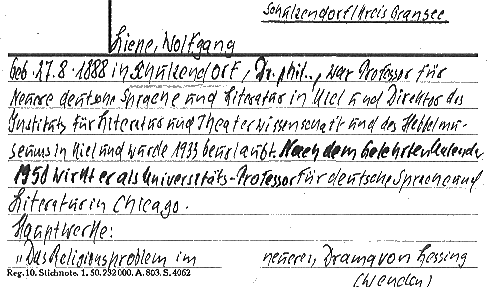 Schulzendorf/Kreis Gransee
Liepe, Wolfgang
Geb. 27.8.1888 in Schulzendorf, Dr. phil., war Professor für
Neuere deutsche Sprache und Literatur in Kiel und Direktor des
Instituts für Literatur und Theaterwissenschaft und des Hebbelmu-
seums in Kiel und wurde 1933 beurlaubt. Nach dem Gelehrtenkalender
1950 wirkt er als Universitäts-Professor für deutsche Sprache und
Literatur in Chicago.
Hauptwerke:
„Das Religionsproblem im neueren Drama von Lessing
Reg. 10. Stichnote. 1. 50. 232000. A. 803. S. 4062